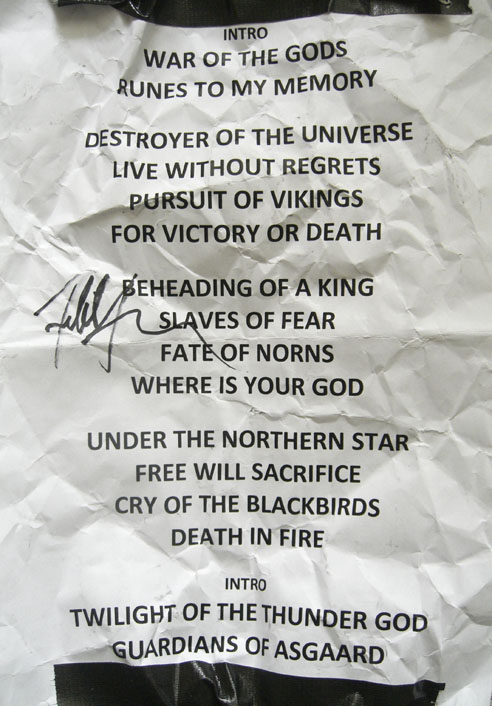 INTRO
WAR OF THE GODS
RUNES TO MY MEMORY
DESTROYER OF THE UNIVERSE
LIVE WITHOUT REGRETS
PURSUIT OF VIKINGS
FOR VICTORY OR DEATH
BEHEADING OF A KING
SLAVES OF FEAR
FATE OF NORNS
WHERE IS YOUR GOD
UNDER THE NORTHERN STAR
FREE WILL SACRIFICE
CRY OF THE BLACKBIRDS
DEATH IN FIRE
INTRO
TWILIGHT OF THE THUNDER GOD
GUARDIANS OF ASGAARD